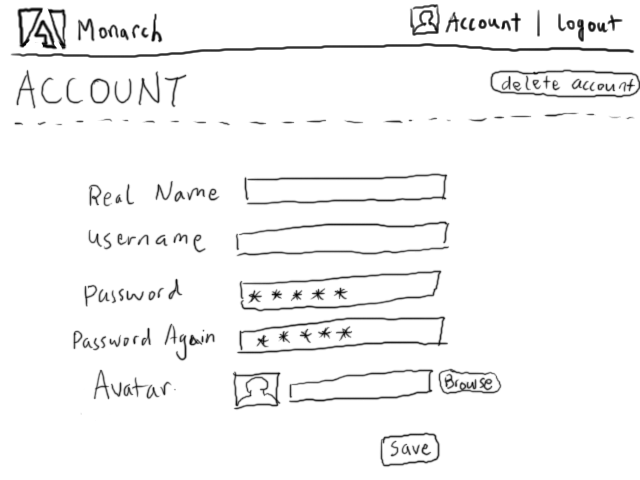 Monarch Account | Logout
ACCOUNT delete account
Real Name
username
Password *****
Password Again *****
Avatar. Browse
Save